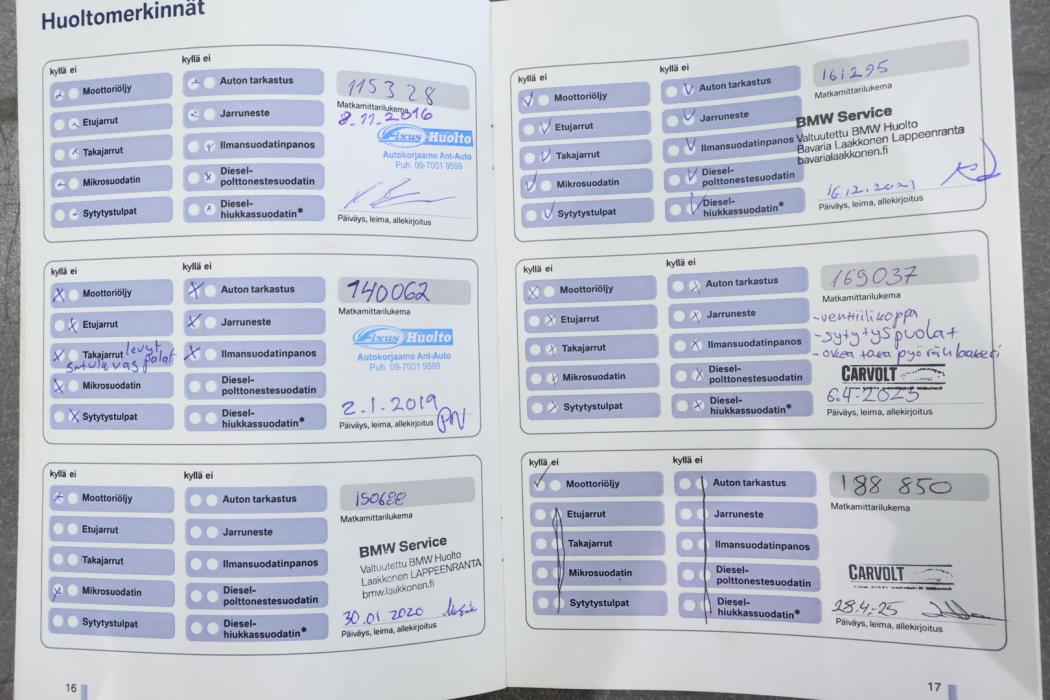 Huoltomerkinnät
kyllä ei
kyllä ei
Moottoriöljy
Auton tarkastus
Etujarrut
Jarruneste
Takajarrut
Ilmansuodatinpanos
Mikrosuodatin
Diesel-
polttonestesuodatin
Sytytystulpat
Diesel-
hiukkassuodatin*
115328
Matkamittarilukema
8.11.2016
Fixus Huolto
Autokorjaamo Ant-Auto
Puh. 09-7001 9599
Päiväys, leima, allekirjoitus
kyllä ei
kyllä ei
Moottoriöljy
Auton tarkastus
Etujarrut
Jarruneste
Takajarrut levyt
satulavas palat
Ilmansuodatinpanos
Mikrosuodatin
Diesel-
polttonestesuodatin
Sytytystulpat
Diesel-
hiukkassuodatin*
140062
Matkamittarilukema
Fixus Huolto
Autokorjaamo Ant-Auto
Puh. 09-7001 9599
2.1.2019
Päiväys, leima, allekirjoitus
kyllä ei
kyllä ei
Moottoriöljy
Auton tarkastus
Etujarrut
Jarruneste
Takajarrut
Ilmansuodatinpanos
Mikrosuodatin
Diesel-
polttonestesuodatin
Sytytystulpat
Diesel-
hiukkassuodatin*
150688
Matkamittarilukema
BMW Service
Valtuutettu BMW Huolto
Laakkonen LAPPEENRANTA
bmw.laakkonen.fi
30.01.2020
Päiväys, leima, allekirjoitus
16
kyllä ei
kyllä ei
Moottoriöljy
Auton tarkastus
Etujarrut
Jarruneste
Takajarrut
Ilmansuodatinpanos
Mikrosuodatin
Diesel-
polttonestesuodatin
Sytytystulpat
Diesel-
hiukkassuodatin*
161295
Matkamittarilukema
BMW Service
Valtuutettu BMW Huolto
Bavaria Laakkonen Lappeenranta
bavarialaakkonen.fi
16.12.2021
Päiväys, leima, allekirjoitus
kyllä ei
kyllä ei
Moottoriöljy
Auton tarkastus
Etujarrut
Jarruneste
Takajarrut
Ilmansuodatinpanos
Mikrosuodatin
Diesel-
polttonestesuodatin
Sytytystulpat
Diesel-
hiukkassuodatin*
169037
Matkamittarilukema
-venttiilikoppa
-sytytyspuolat
-oikea taka pyöränlaakeri
CARVOLT
6.4.2023
Päiväys, leima, allekirjoitus
kyllä ei
kyllä ei
Moottoriöljy
Auton tarkastus
Etujarrut
Jarruneste
Takajarrut
Ilmansuodatinpanos
Mikrosuodatin
Diesel-
polttonestesuodatin
Sytytystulpat
Diesel-
hiukkassuodatin*
188 850
Matkamittarilukema
CARVOLT
28.4-25
Päiväys, leima, allekirjoitus
17